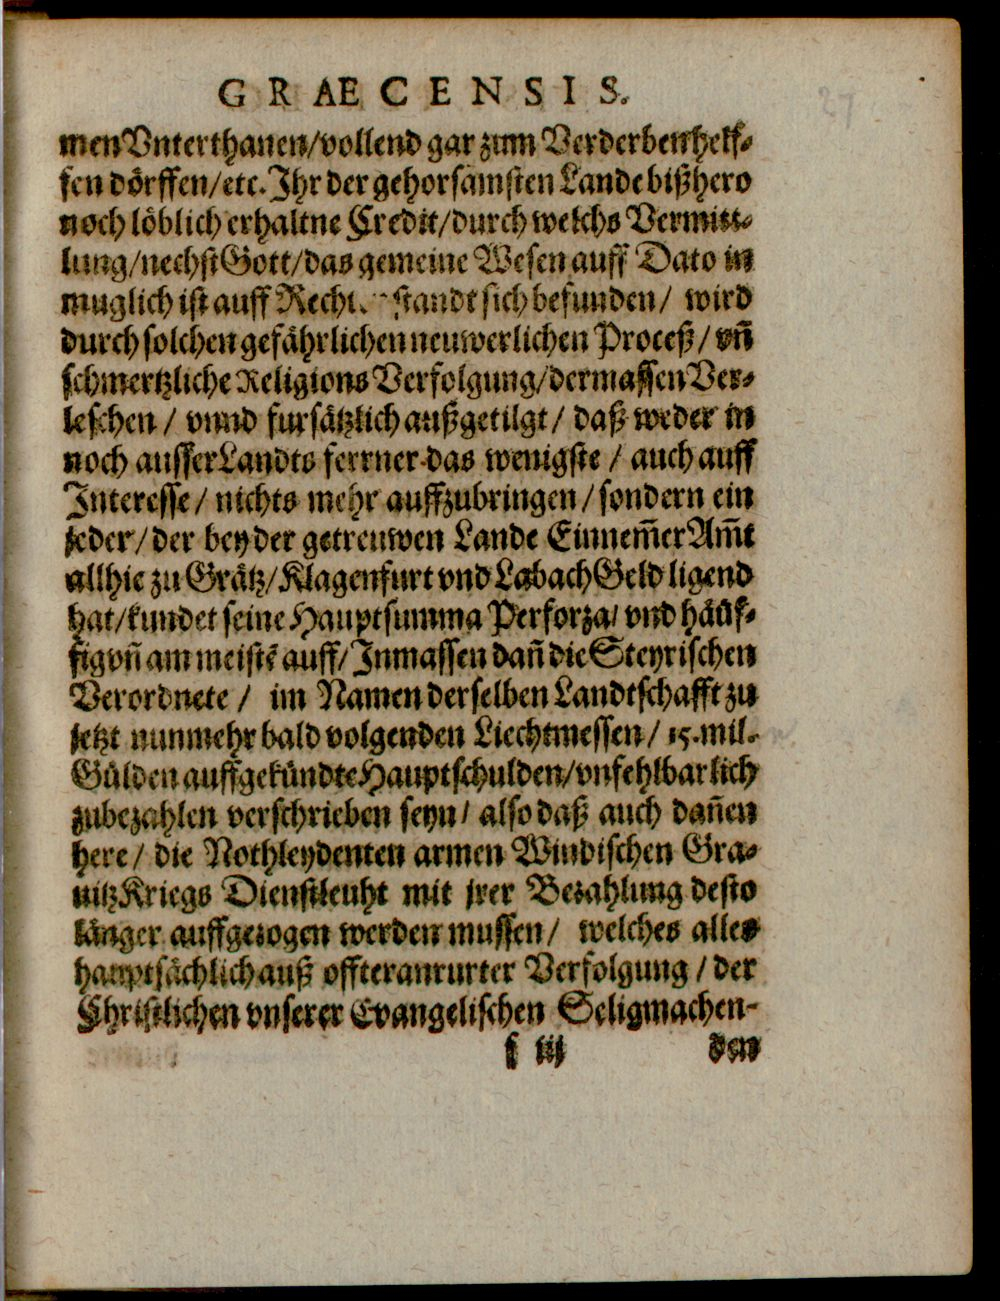 GRAECENSIS.
27
men Vnterthanen/vollend gar zum Verderben helf-
fen dörffen/etc. Ihr der gehorsamsten Lande bißhero
noch löblich erhaltne Credit/durch welchs Vermitt-
lung/nechst Gott/das gemeine Wesen auff Dato in
muglich ist auff standt sich befunden/ wird
durch solchen gefährlichen neuwerlichen Proceß/ vñ
schmertzliche Religions Verfolgung/dermassen Ver-
leschen/ vnnd fursätzlich außgetilgt/ daß weder in
noch ausser Landts ferrner das wenigste/ auch auff
Interesse/ nichts mehr auffzubringen/ sondern ein
jeder/ der bey der getreuwen Lande Einnem̃er Am̃t
allhie zu Grätz/Klagenfurt vnd Labach Geld ligend
hat/kundet seine Hauptsumma Perforza/ vnd häuf-
fig vñ am meistē auff/ Inmassen dañ die Steyrischen
Verordnete/ im Namen derselben Landtschafft zu
jetzt nunmehr bald volgenden Liechtmessen/ 15. mil.
Gülden auffgekündte Hauptschulden/vnfehlbarlich
zubezahlen verschrieben seyn/ also daß auch dañen
here/ die Nothleydenten armen Windischen Gra-
nitz Kriegs Dienstleuht mit jrer Bezahlung desto
länger auffgezogen werden mussen/ welches alles
hauptsächlich auß offteranrurter Verfolgung/ der
Christlichen vnserer Evangelischen Seligmachen-
f iij den